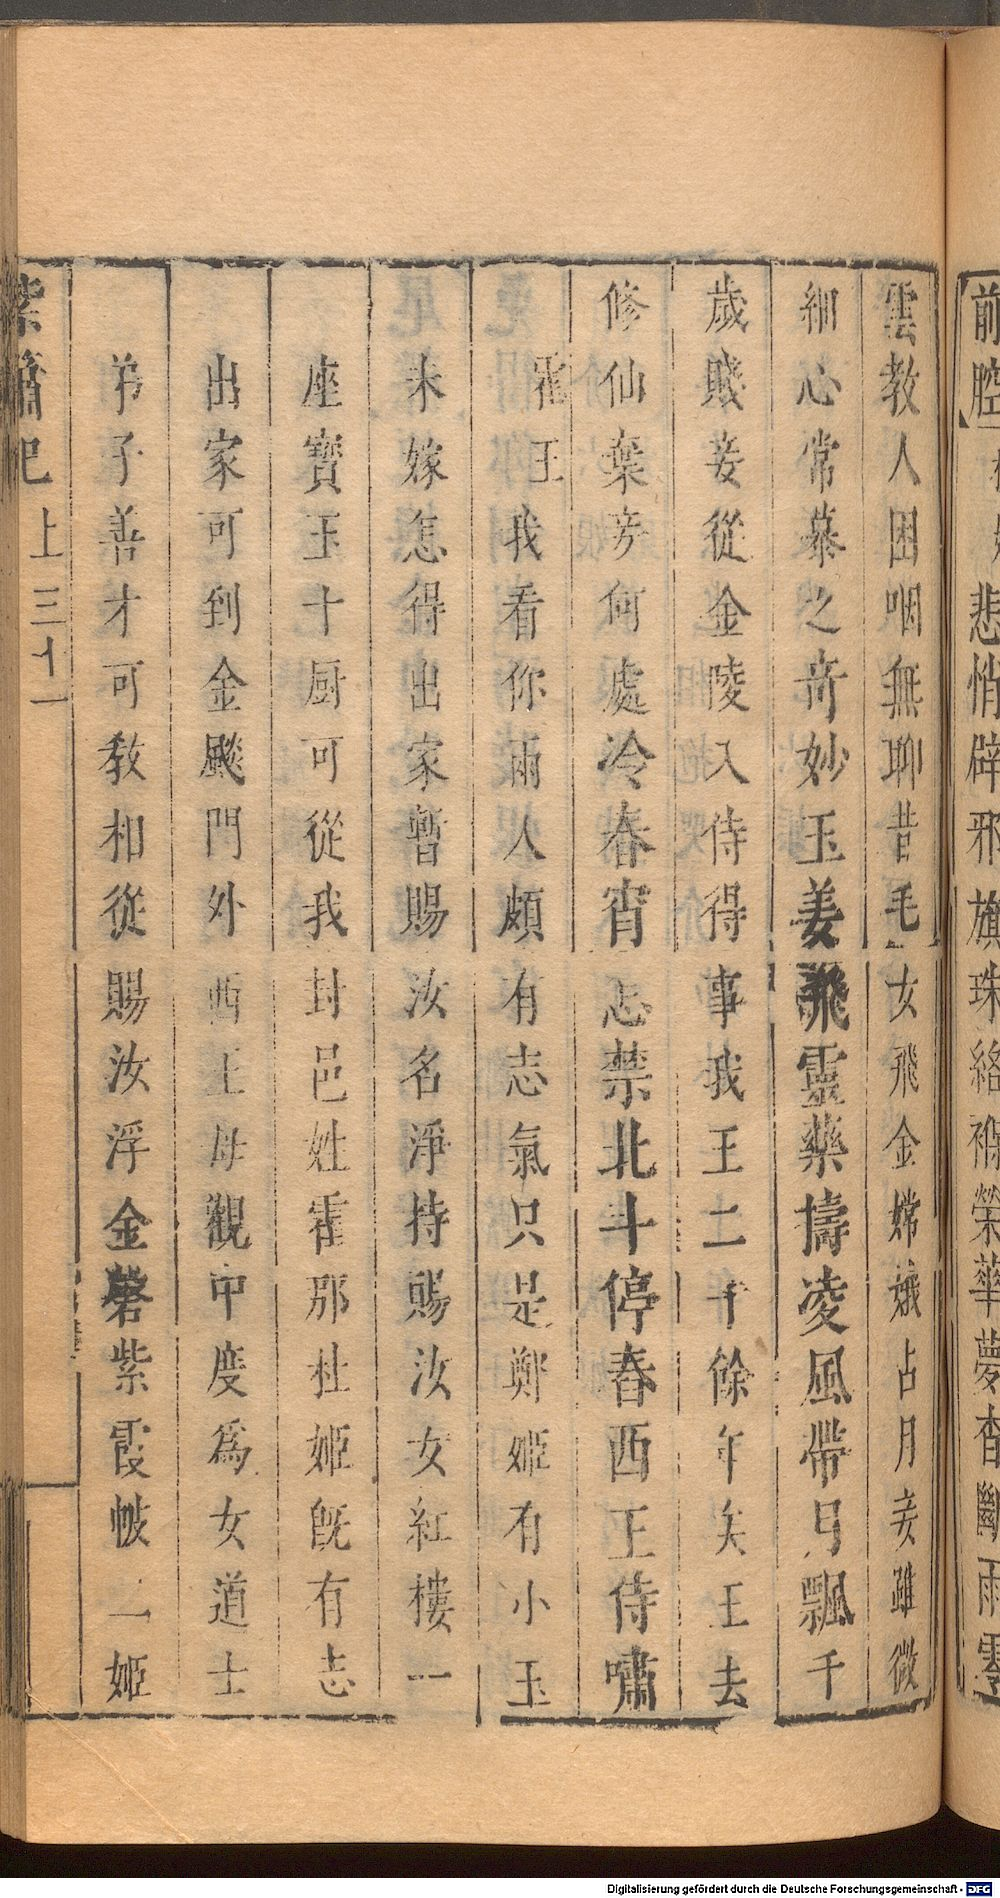 前腔
悲悄辟邪旗珠絡褥榮華夢杳斷雨零
雲教人困咽無聊昔毛女飛金嫦娥占月妾雖微
細心常慕之奇妙玉姜飛靈藥擣凌風帶月飄千
歲賤妾從金陵入侍得事我王二十餘年矣王去
修仙葉妾何處冷春宵忘禁北斗停春西王侍嘯
霍王我看你兩人頗有志氣只是鄭姬有小玉
未嫁怎得出家暫賜汝名淨持賜汝女紅樓一
座寶玉十厨可從我封邑姓霍那杜姬旣有志
出家可到金飈門外西王母觀中度爲女道士
弟子善才可教相從賜汝浮金磬紫霞帔二姬
紫簫記 上 三十一
Digitalisierung gefördert durch die Deutsche Forschungsgemeinschaft - DFG